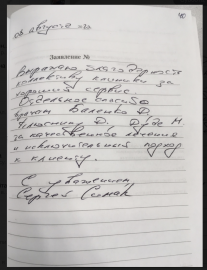 40
08 августа
Заявление №
Выражаю благодарность
коллективу клиники за
хороший сервис.
Отдельное спасибо
врачам Беленко Д.
Д. Дуде М.
за качественное лечение
и исключительный подход
к клиенту.
С уважением
Сергей